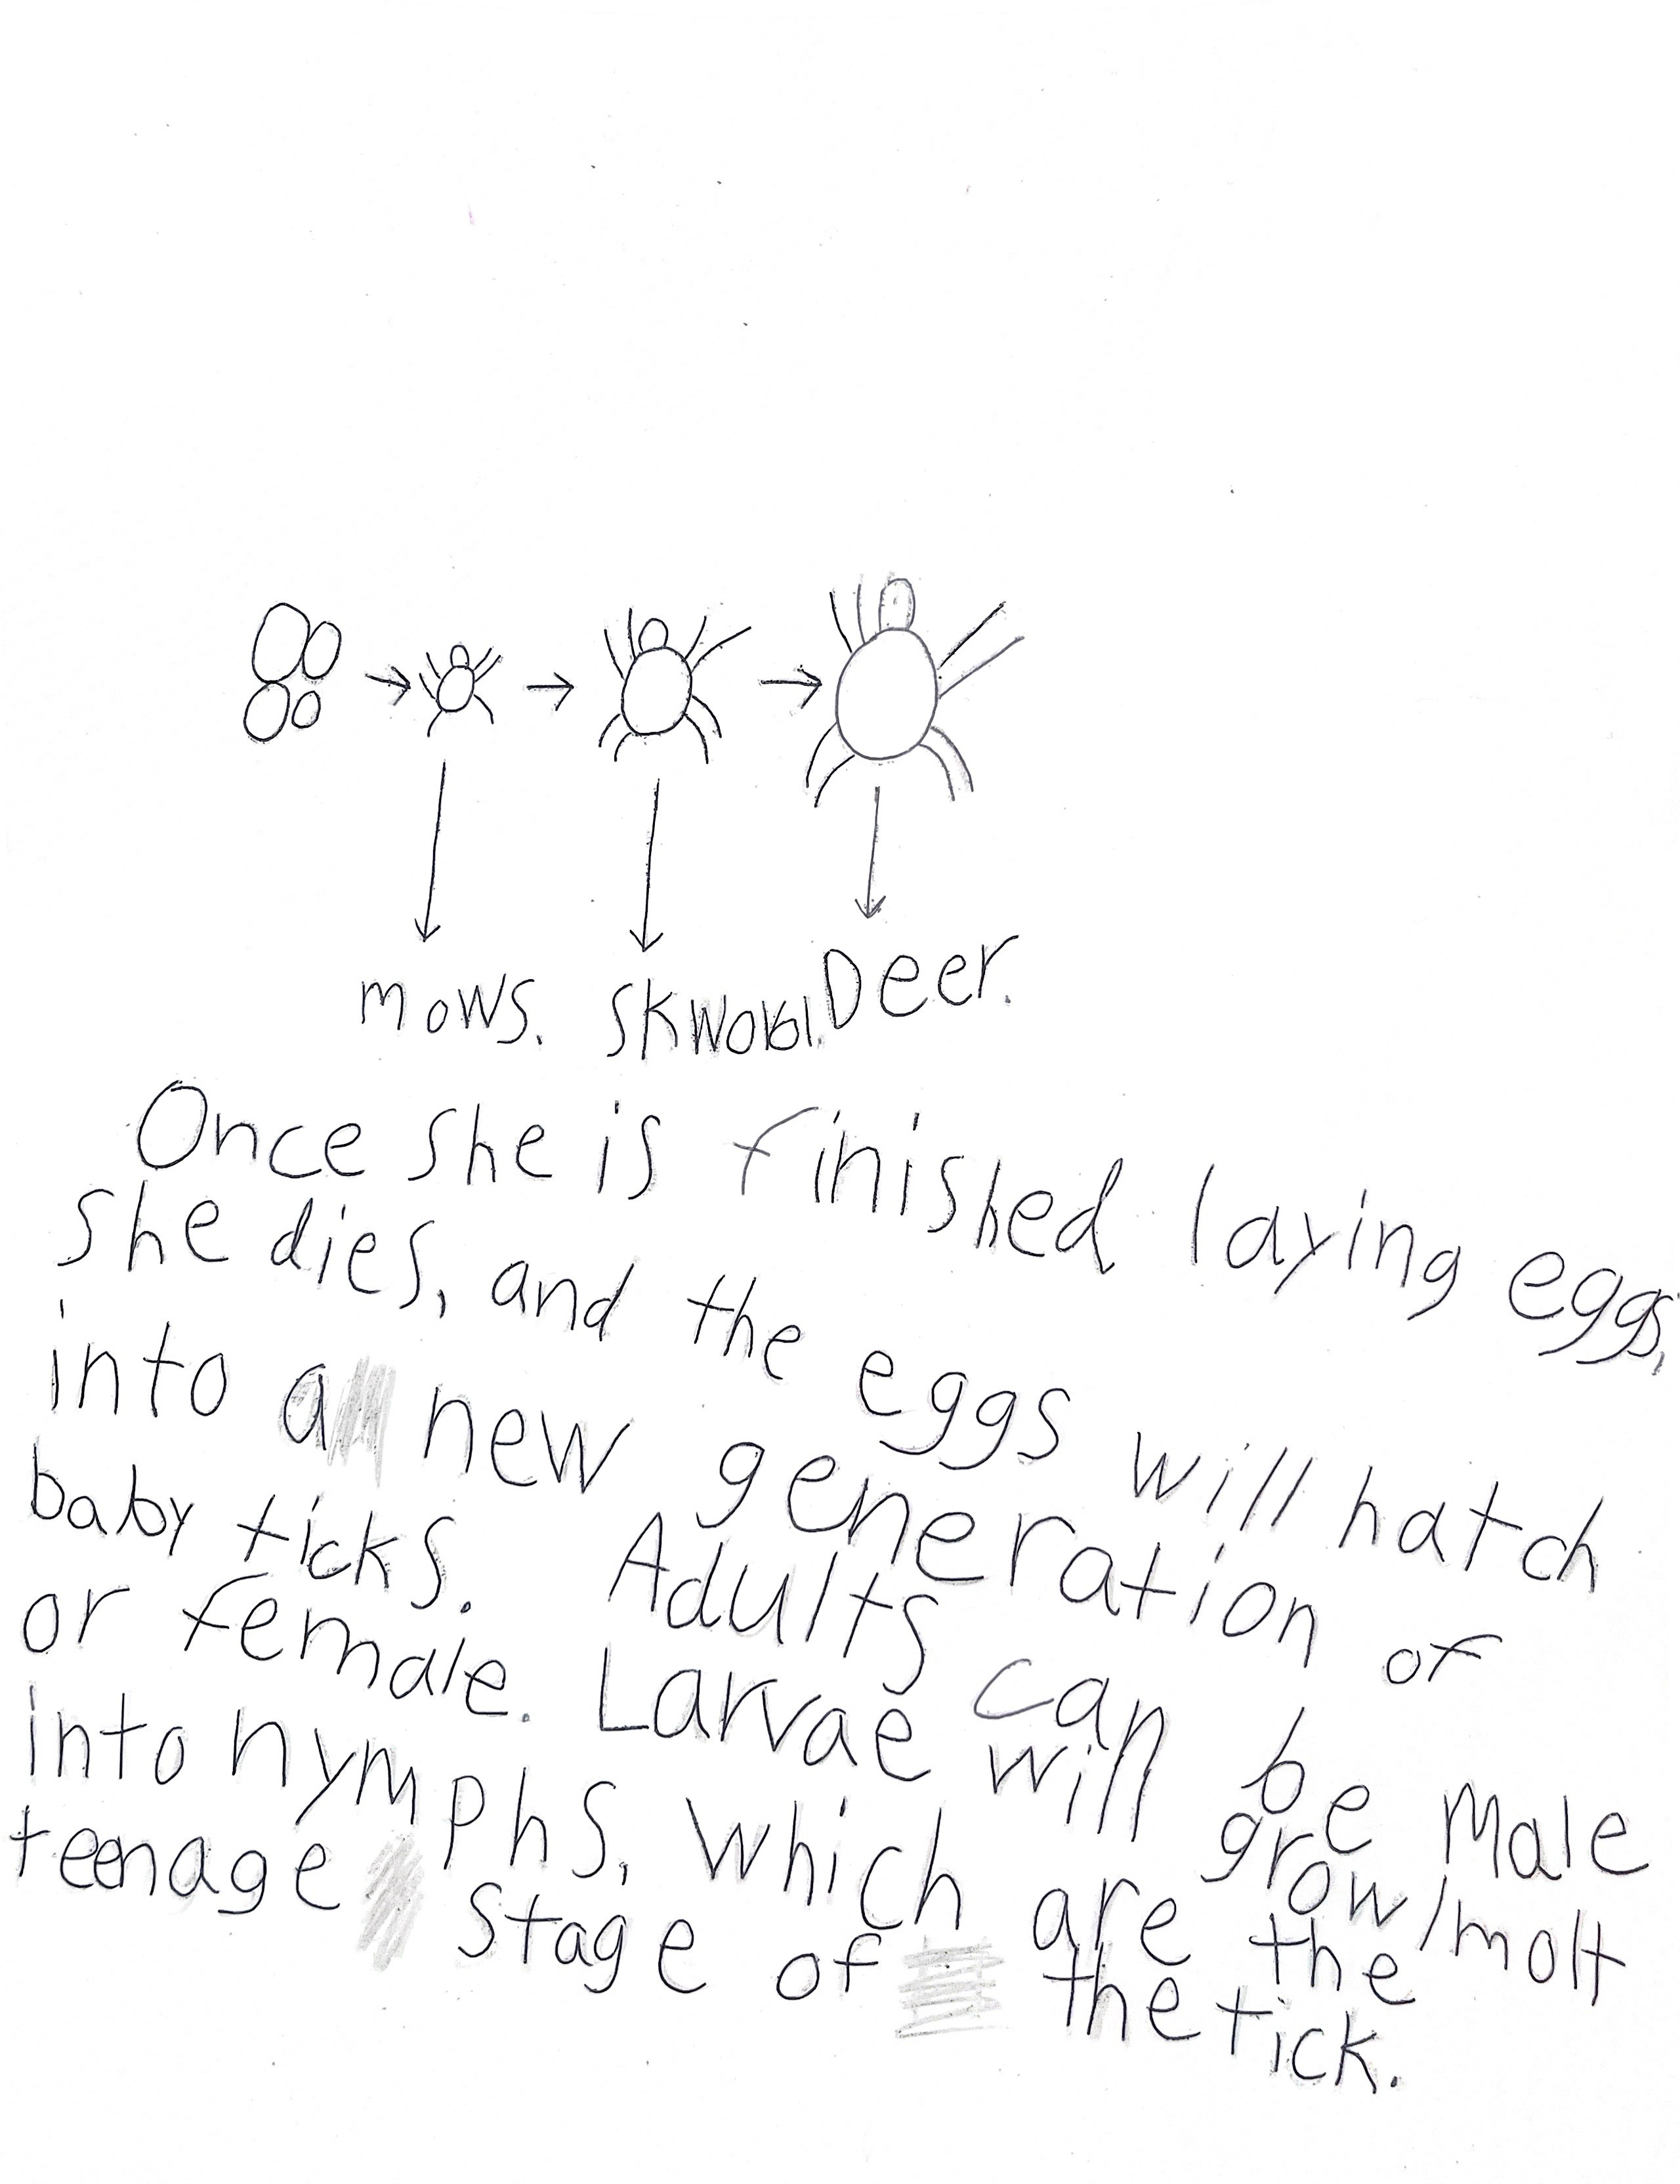 mows. Skworl. Deer.
Once she is finished laying eggs,
she dies, and the eggs will hatch
into a new generation of
baby ticks. Adults can be Male
or female. Larvae will grow/molt
into nymphs, which are the
teenage stage of the tick.